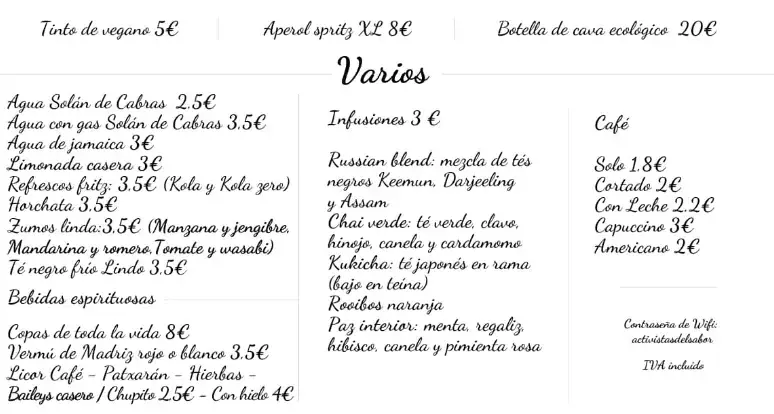 Tinto de vegano 5€
Aperol spritz XL 8€
Botella de cava ecológico 20€
Varios
Agua Solán de Cabras 2.5€
Agua con gas Solán de Cabras 3.5€
Agua de jamaica 3€
Limonada casera 3€
Refrescos fritz: 3.5€ (Kola y Kola zero)
Horchata 3.5€
Zumos linda:3.5€ (Manzana y jengibre,
Mandarina y romero,Tomate y wasabi)
Té negro frío Lindo 3.5€
Bebidas espirituosas
Copas de toda la vida 8€
Vermú de Madriz rojo o blanco 3.5€
Licor Café - Patxarán - Hierbas -
Baileys casero / Chupito 2.5€ - Con hielo 4€
Infusiones 3 €
Russian blend: mezcla de tés
negros Keemun, Darjeeling
y Assam
Chai verde: té verde, clavo,
hinojo, canela y cardamomo
Kukicha: té japonés en rama
(bajo en teína)
Rooibos naranja
Paz interior: menta, regaliz,
hibisco, canela y pimienta rosa
Café
Solo 1.8€
Cortado 2€
Con Leche 2.2€
Capuccino 3€
Americano 2€
Contraseña de Wifi:
activistasdelsabor
IVA incluido